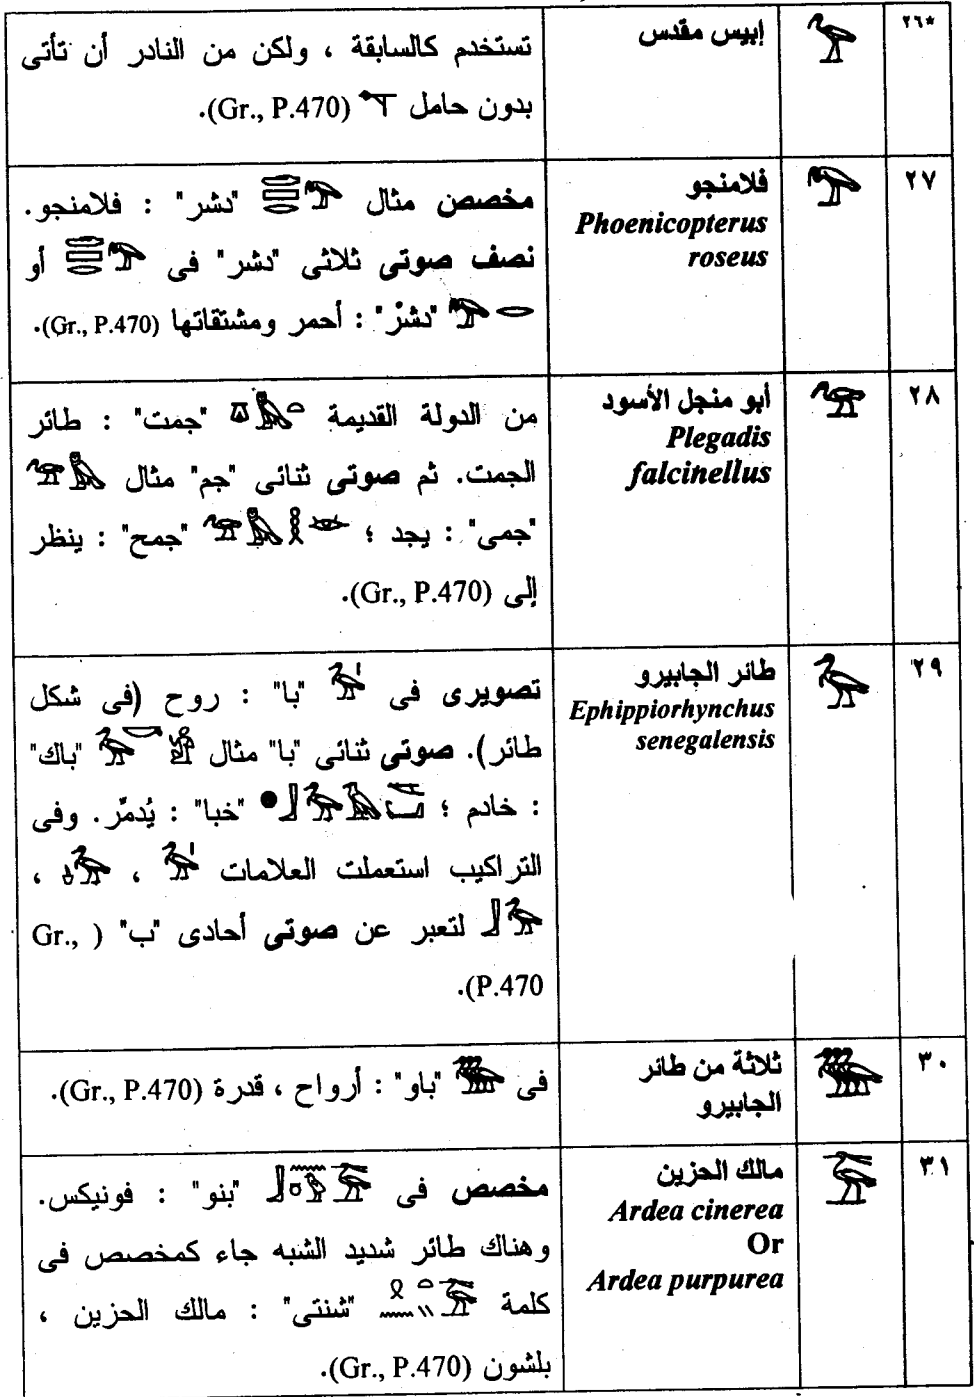 *٢٦
إبيس مقدس
تستخدم كالسابقة ، ولكن من النادر أن تأتى
بدون حامل (Gr., P.470).
٢٧
فلامنجو
Phoenicopterus
roseus
مخصص مثال "دشر" : فلامنجو.
نصف صوتى ثلاثى "دشر" فى أو
"دشرْ" : أحمر ومشتقاتها (Gr., P.470).
٢٨
أبو منجل الأسود
Plegadis
falcinellus
من الدولة القديمة "جمت" : طائر
الجمت. ثم صوتى ثنائى "جم" مثال
"جمى" : يجد ؛ "جمح" : ينظر
إلى (Gr., P.470).
٢٩
طائر الجابيرو
Ephippiorhynchus
senegalensis
تصويرى فى "با" : روح (فى شكل
طائر). صوتى ثنائى "با" مثال "باك"
: خادم ؛ "خبا" : يُدمّر. وفى
التراكيب استعملت العلامات ، ،
لتعبر عن صوتى أحادى "ب" ( Gr.,
P.470).
٣٠
ثلاثة من طائر
الجابيرو
فى "باو" : أرواح ، قدرة (Gr., P.470).
٣١
مالك الحزين
Ardea cinerea
Or
Ardea purpurea
مخصص فى "بنو" : فونيكس.
وهناك طائر شديد الشبه جاء كمخصص فى
كلمة "شنتى" : مالك الحزين ،
بلشون (Gr., P.470).